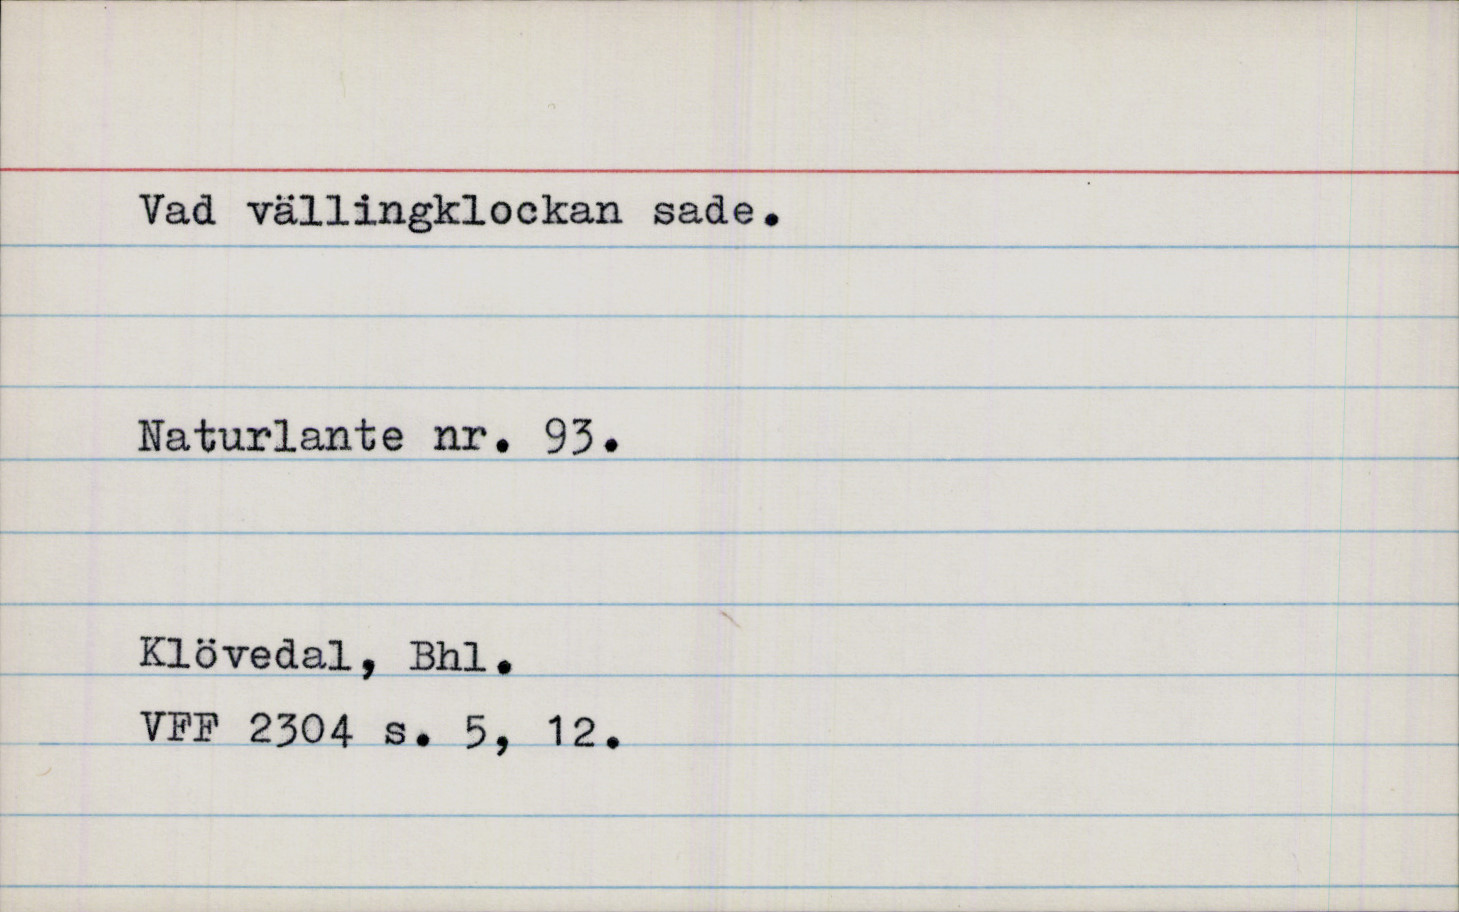 Vad vällingklockan sade.
Naturlante nr. 93.
Klövedal, Bhl.
VFF 2304 s. 5, 12.